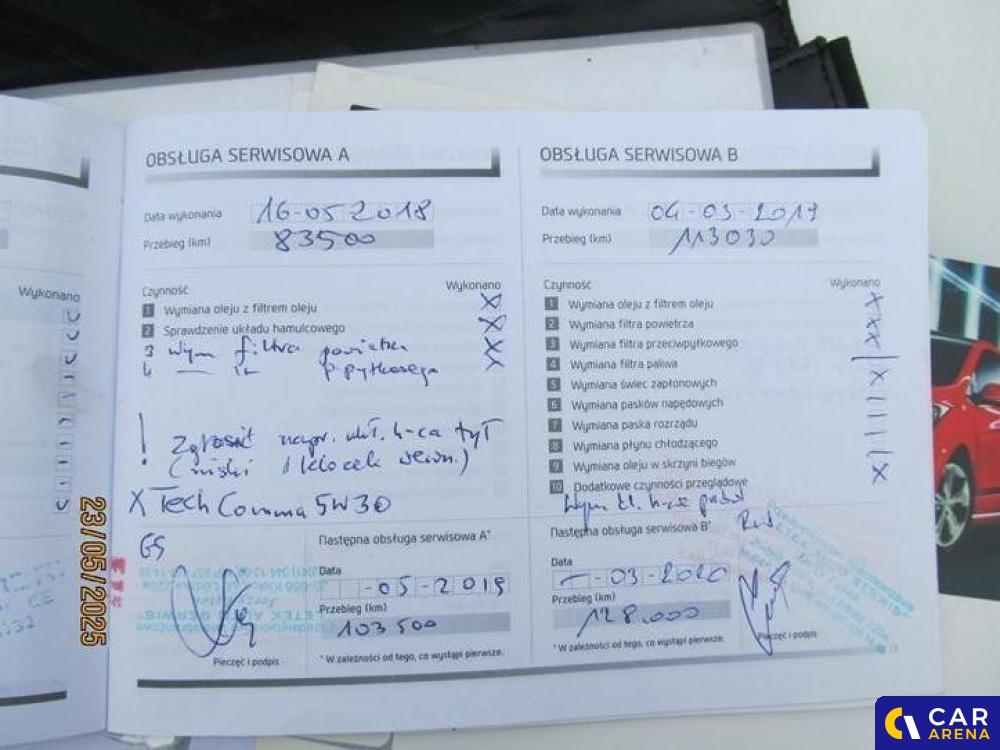 Wykonano
OBSŁUGA SERWISOWA A
Data wykonania 16-05 2018
Przebieg (km) 83500
Czynność Wykonano
1 Wymiana oleju z filtrem oleju X
2 Sprawdzenie układu hamulcowego X
3 Wym filtra powietrza X
4 p.pyłkowego X
! Zgłosić napr. ukł. h-ca tył
1 klocek
X Tech Comma 5W30
GS
Następna obsługa serwisowa A*
Data
-05-2019
Przebieg (km)
103500
* W zależności od tego, co wystąpi pierwsze.
Pieczęć i podpis
OBSŁUGA SERWISOWA B
Data wykonania 04-03-2019
Przebieg (km) 113030
Czynność Wykonano
1 Wymiana oleju z filtrem oleju X
2 Wymiana filtra powietrza X
3 Wymiana filtra przeciwpyłkowego X
4 Wymiana filtra paliwa
5 Wymiana świec zapłonowych X
6 Wymiana pasków napędowych
7 Wymiana paska rozrządu
8 Wymiana płynu chłodzącego
9 Wymiana oleju w skrzyni biegów
10 Dodatkowe czynności przeglądowe X
Wym kl. h-ce przód
Następna obsługa serwisowa B*
Data
-03-2020
Przebieg (km)
128.000
* W zależności od tego, co wystąpi pierwsze.
Pieczęć i podpis
23/05/2025
CAR
ARENA